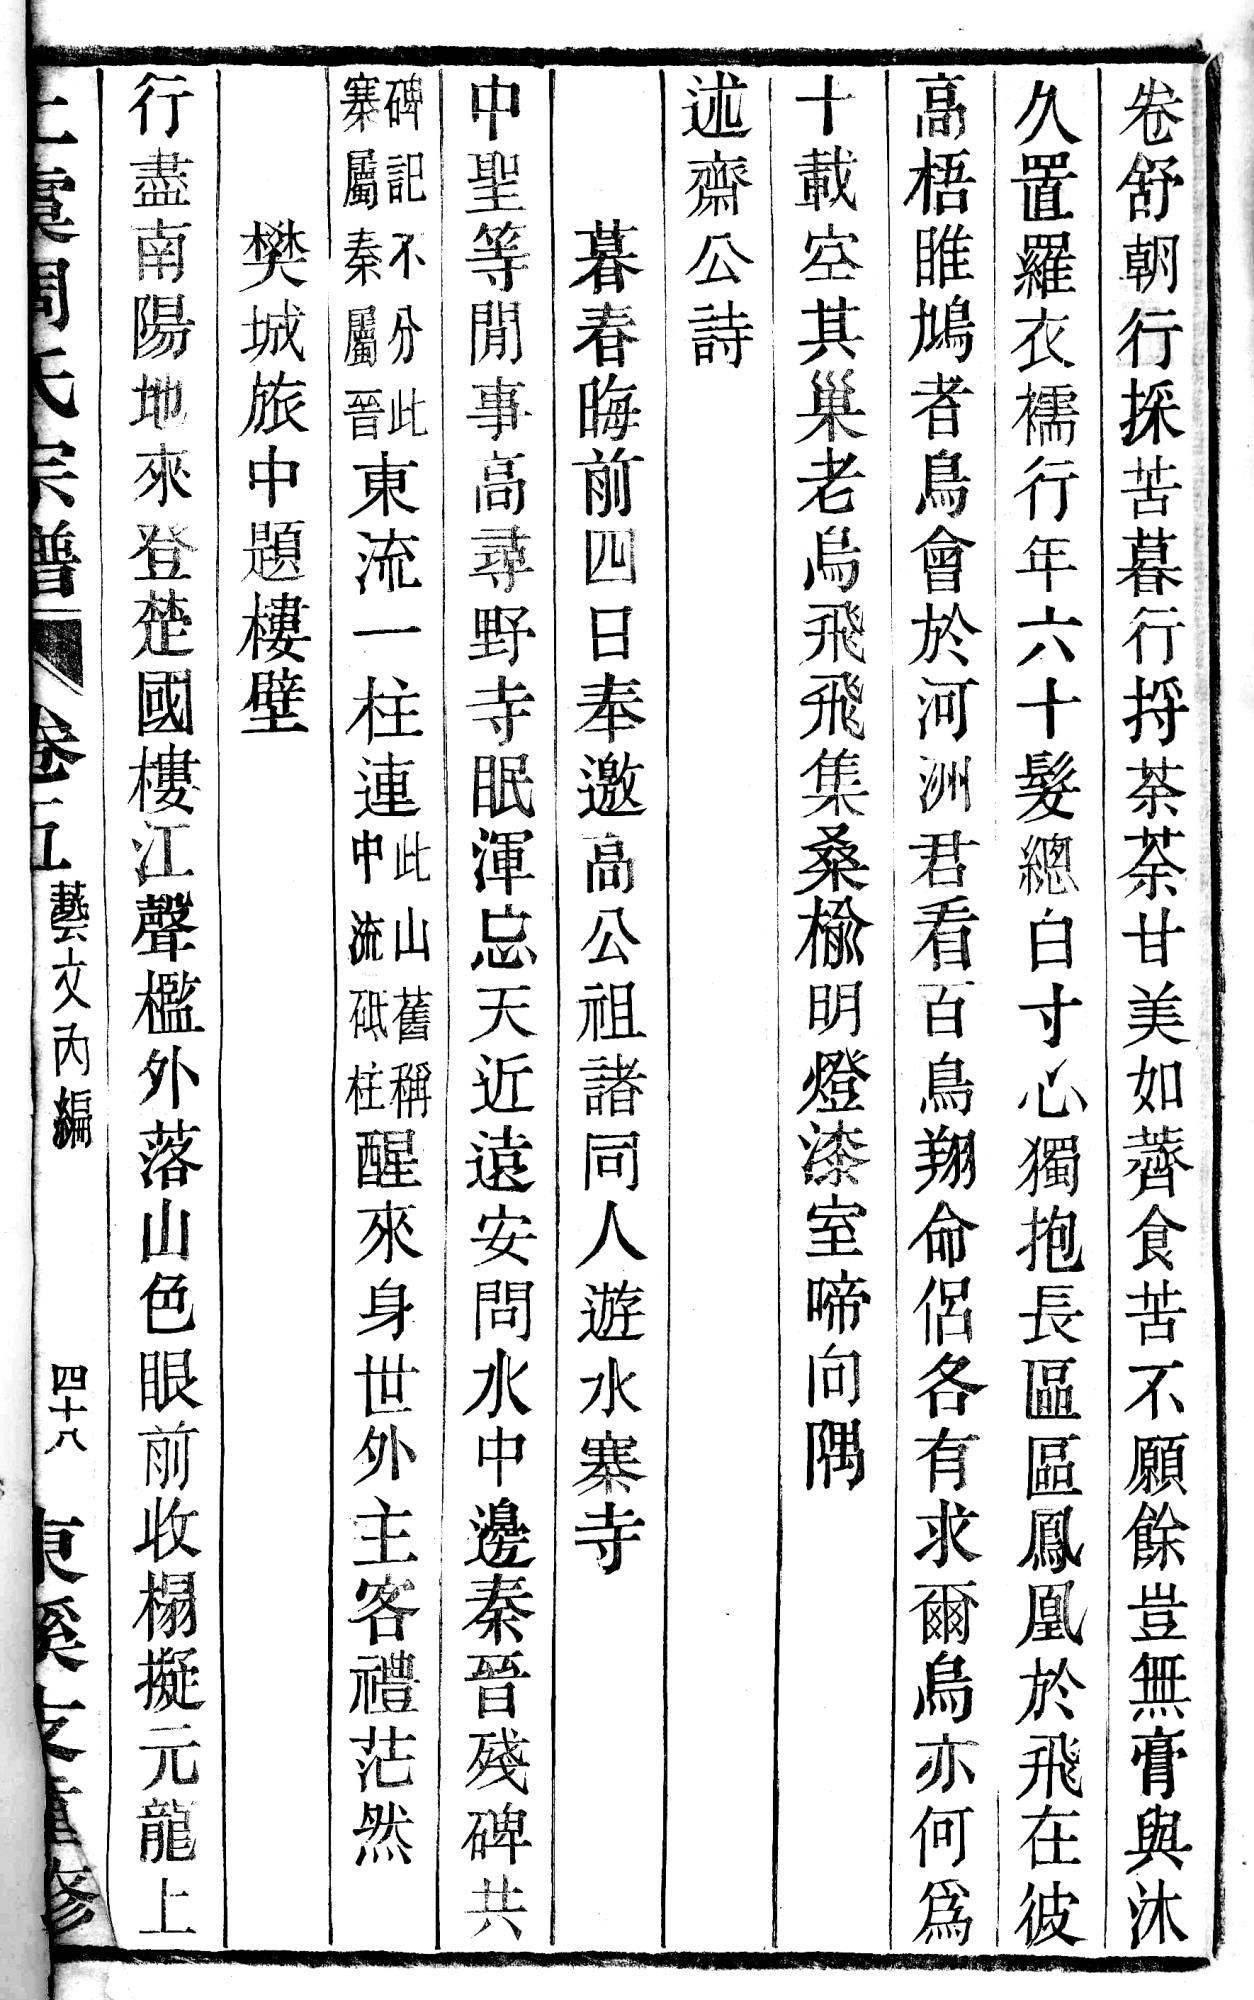 卷舒朝行採苦暮行捋荼荼甘美如薺食苦不願餘豈無膏與沐
久置羅衣襦行年六十髮總白寸心獨抱長區區鳳凰於飛在彼
高梧睢鳩者鳥會於河洲君看百鳥翔命侶各有求爾烏亦何爲
十載空其巢老烏飛飛集桑榆明燈漆室啼向隅
述齋公詩
暮春晦前四日奉邀高公祖諸同人遊水寨寺
中聖等閒事高尋野寺眠渾忘天近遠安問水中邊秦晉殘碑共
碑記不分此
寨屬秦屬晉
東流一柱連
此山舊稱
中流砥柱
醒來身世外主客禮茫然
樊城旅中題樓壁
行盡南陽地來登楚國樓江聲檻外落山色眼前收榻擬元龍上
上虞周氏宗譜 卷五 藝文內編 四十八 東溪支重修